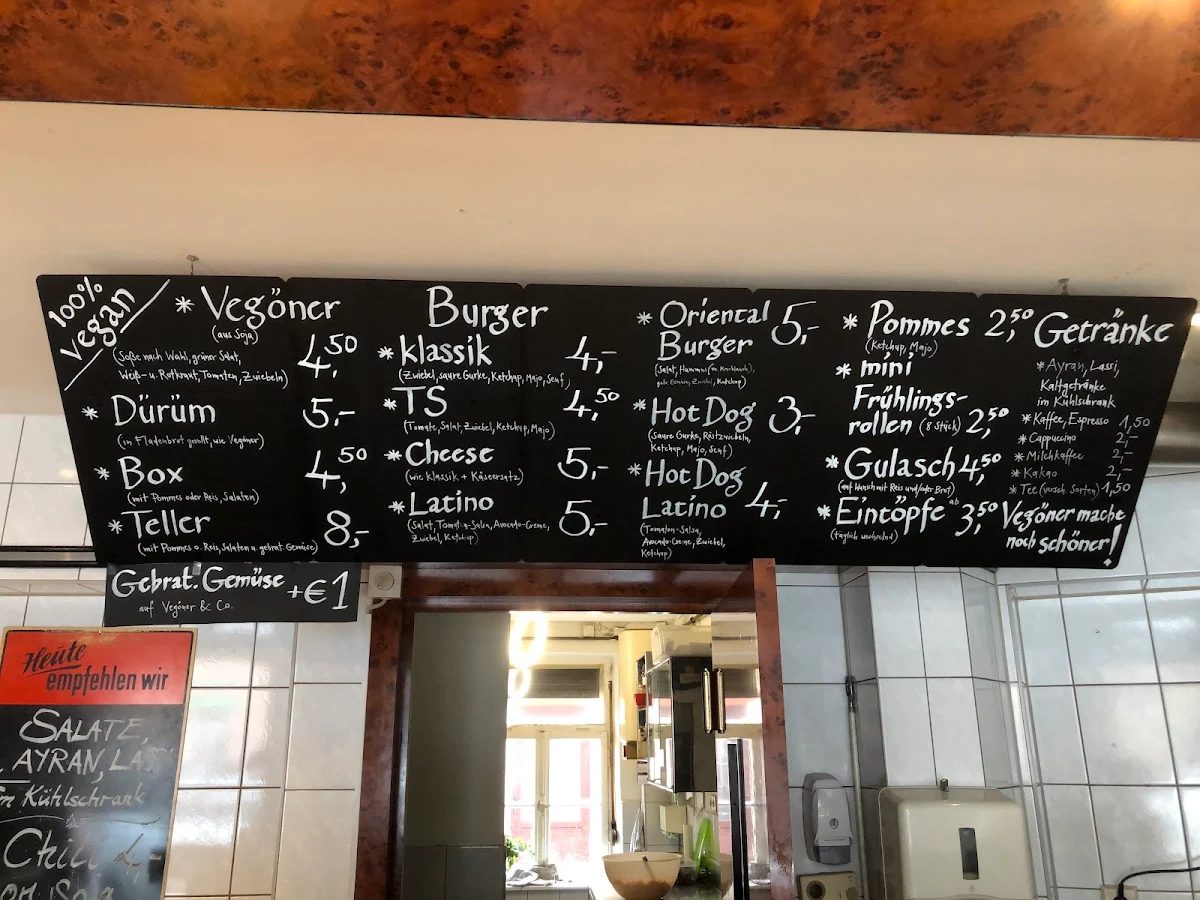 100%
vegan
* Vegöner
(aus Soja)
4,50
(Soße nach Wahl, grüner Salat,
Weiß- u. Rotkraut, Tomaten, Zwiebeln)
* Dürüm 5,-
(in Fladenbrot gerollt, wie Vegöner)
* Box 4,50
(mit Pommes oder Reis, Salaten)
* Teller 8,-
(mit Pommes o. Reis, Salaten u. gebrat. Gemüse)
Gebrat. Gemüse +€1
auf Vegöner & Co.
Burger
* Klassik 4,-
(Zwiebel, saure Gurke, Ketchup, Majo, Senf)
* TS 4,50
(Tomate, Salat, Zwiebel, Ketchup, Majo)
* Cheese 5,-
(wie Klassik + Käseersatz)
* Latino 5,-
(Salat, Tomaten-Salsa, Avocado-Creme,
Zwiebel, Ketchup)
* Oriental 5,-
Burger
(Salat, Hummus
Zwiebel, Ketchup)
* Hot Dog 3,-
(saure Gurke, Röstzwiebeln,
Ketchup, Majo, Senf)
* Hot Dog
Latino 4,-
(Tomaten-Salsa,
Avocado-Creme, Zwiebel,
Ketchup)
* Pommes 2,50
(Ketchup, Majo)
* mini
Frühlings-
rollen (8 Stück) 2,50
* Gulasch 4,50
(auf Wunsch mit Reis und/oder Brot)
* Eintöpfe ab 3,50
(täglich wechselnd)
Getränke
* Ayran, Lassi,
Kaltgetränke
im Kühlschrank
* Kaffee, Espresso 1,50
* Cappuccino 2,-
* Milchkaffee 2,-
* Kakao 2,-
* Tee (versch. Sorten) 1,50
Vegöner mache
noch schöner!
Heute
empfehlen wir
SALATE,
AYRAN,
Kühlschrank
Chili 4,-
Soja